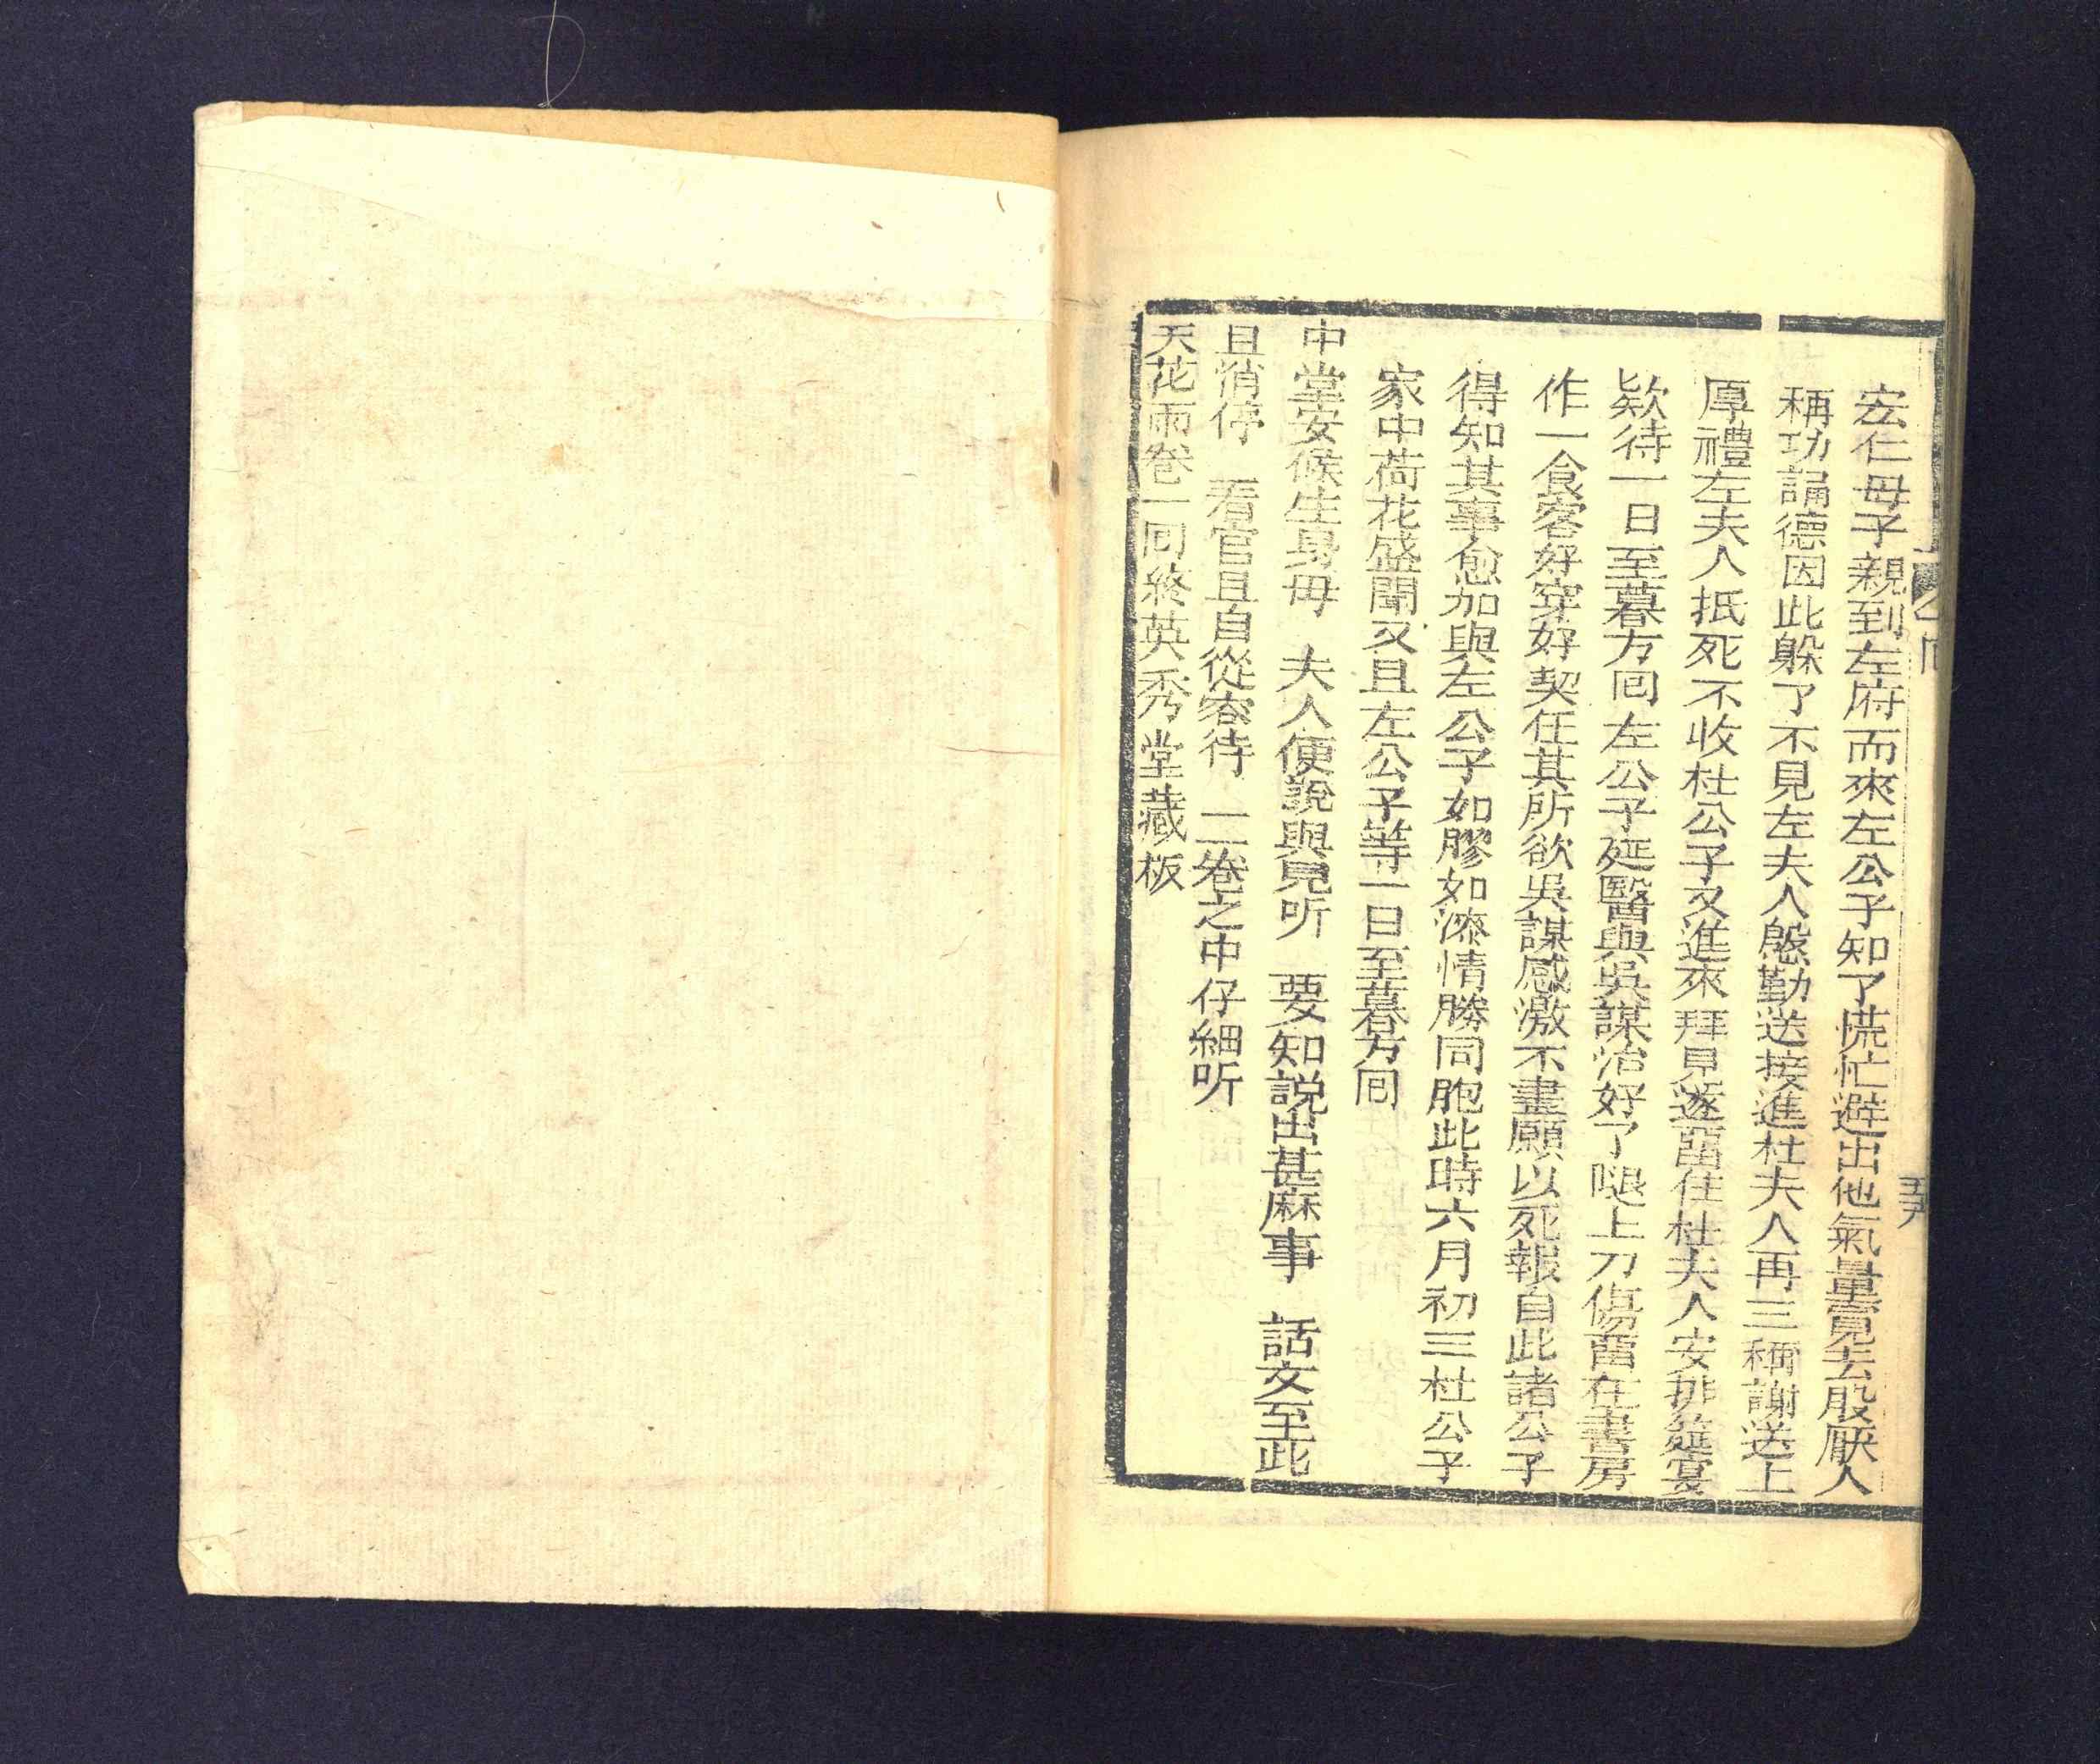 宏仁母子親到左府而來左公子知了慌忙避出他氣量寬去殷厭人
稱功誦德因此躲了不見左夫人慇勤送接進杜夫人再三稱謝送上
厚禮左夫人抵死不收杜公子又進來拜見遂畱住杜夫人安排筵宴
欵待一日至暮方囘左公子延醫與吳謀治好了腿上刀傷畱在書房
作一食客好穿好契任其所欲吳謀感激不盡願以死報自此諸公子
得知其事愈加與左公子如膠如漆情勝同胞此時六月初三杜公子
家中荷花盛開又且左公子等一日至暮方囘
中堂安候生身母　夫人便說與兒听　要知説出甚麻事　話文至此
且消停　看官且自從容待　二卷之中仔細听
天花雨卷一囘終英秀堂藏板